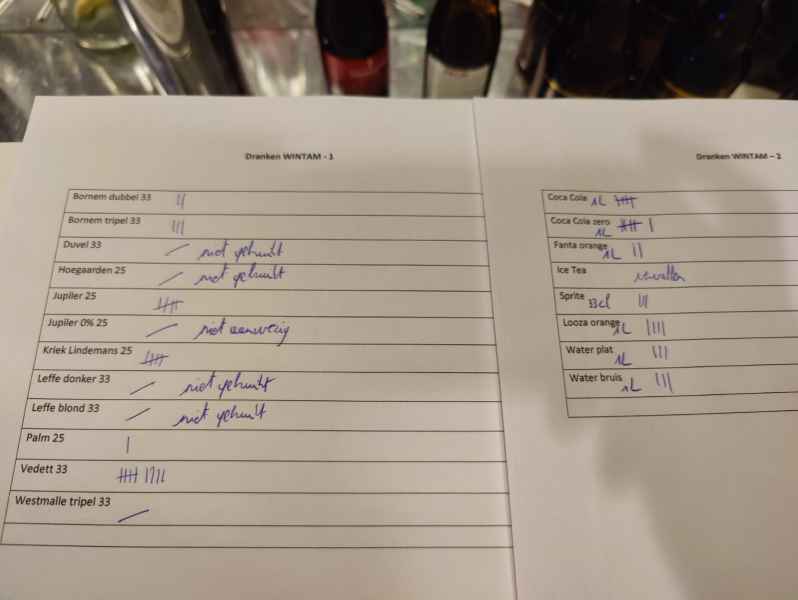 Dranken WINTAM - 1
Bornem dubbel 33 ||
Bornem tripel 33 |||
Duvel 33 — niet gebruikt
Hoegaarden 25 — niet gebruikt
Jupiler 25 ||||
Jupiler 0% 25 — niet aanwezig
Kriek Lindemans 25 ||||
Leffe donker 33 — niet gebruikt
Leffe blond 33 — niet gebruikt
Palm 25 |
Vedett 33 |||| ||||
Westmalle tripel 33 —
Dranken WINTAM – 1
Coca Cola 1L ||||
Coca Cola zero 1L |||| |
Fanta orange 1L ||
Ice Tea
Sprite 33cl |||
Looza orange 1L ||||
Water plat 1L |||
Water bruis 1L |||